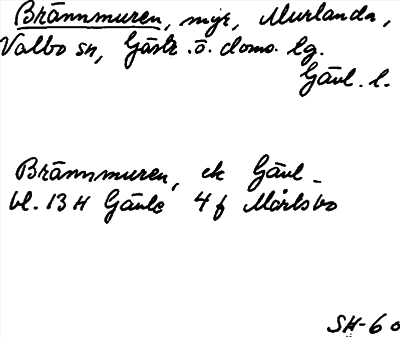 Brännmuren, myr, Murlanda,
Valbo sn, Gästr. ö. doms. lg.
Gävl. l.
Brännmuren, ek Gävl-
bl. 13 H Gävle 4 f Mårtsbo
SH-60